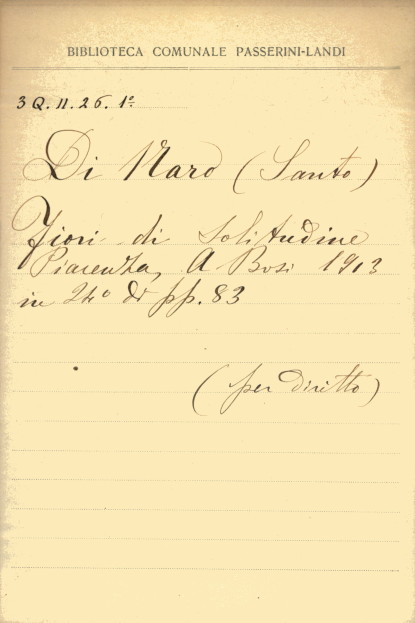 BIBLIOTECA COMUNALE PASSERINI-LANDI
3 Q. II. 26. 1º
Di Naro (Santo)
Fiori di solitudine
Piacenza, A Bosi 1913
in 24º di pp. 83
(per diritto)